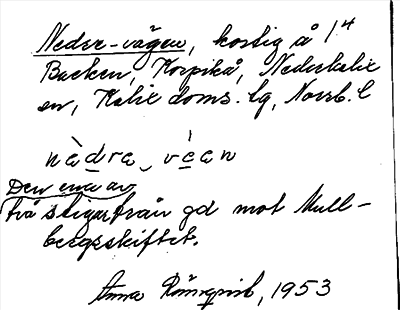 Neder-vägen, kostig å 1⁴
Backen, Korpikå, Nederkalix
en, Kalix doms. lg, Norrb. l
nàdra ‿ vèan
Den ena av
två stigar från gd mot Mull-
bergsskiftet.
Anna Rönnqvist, 1953